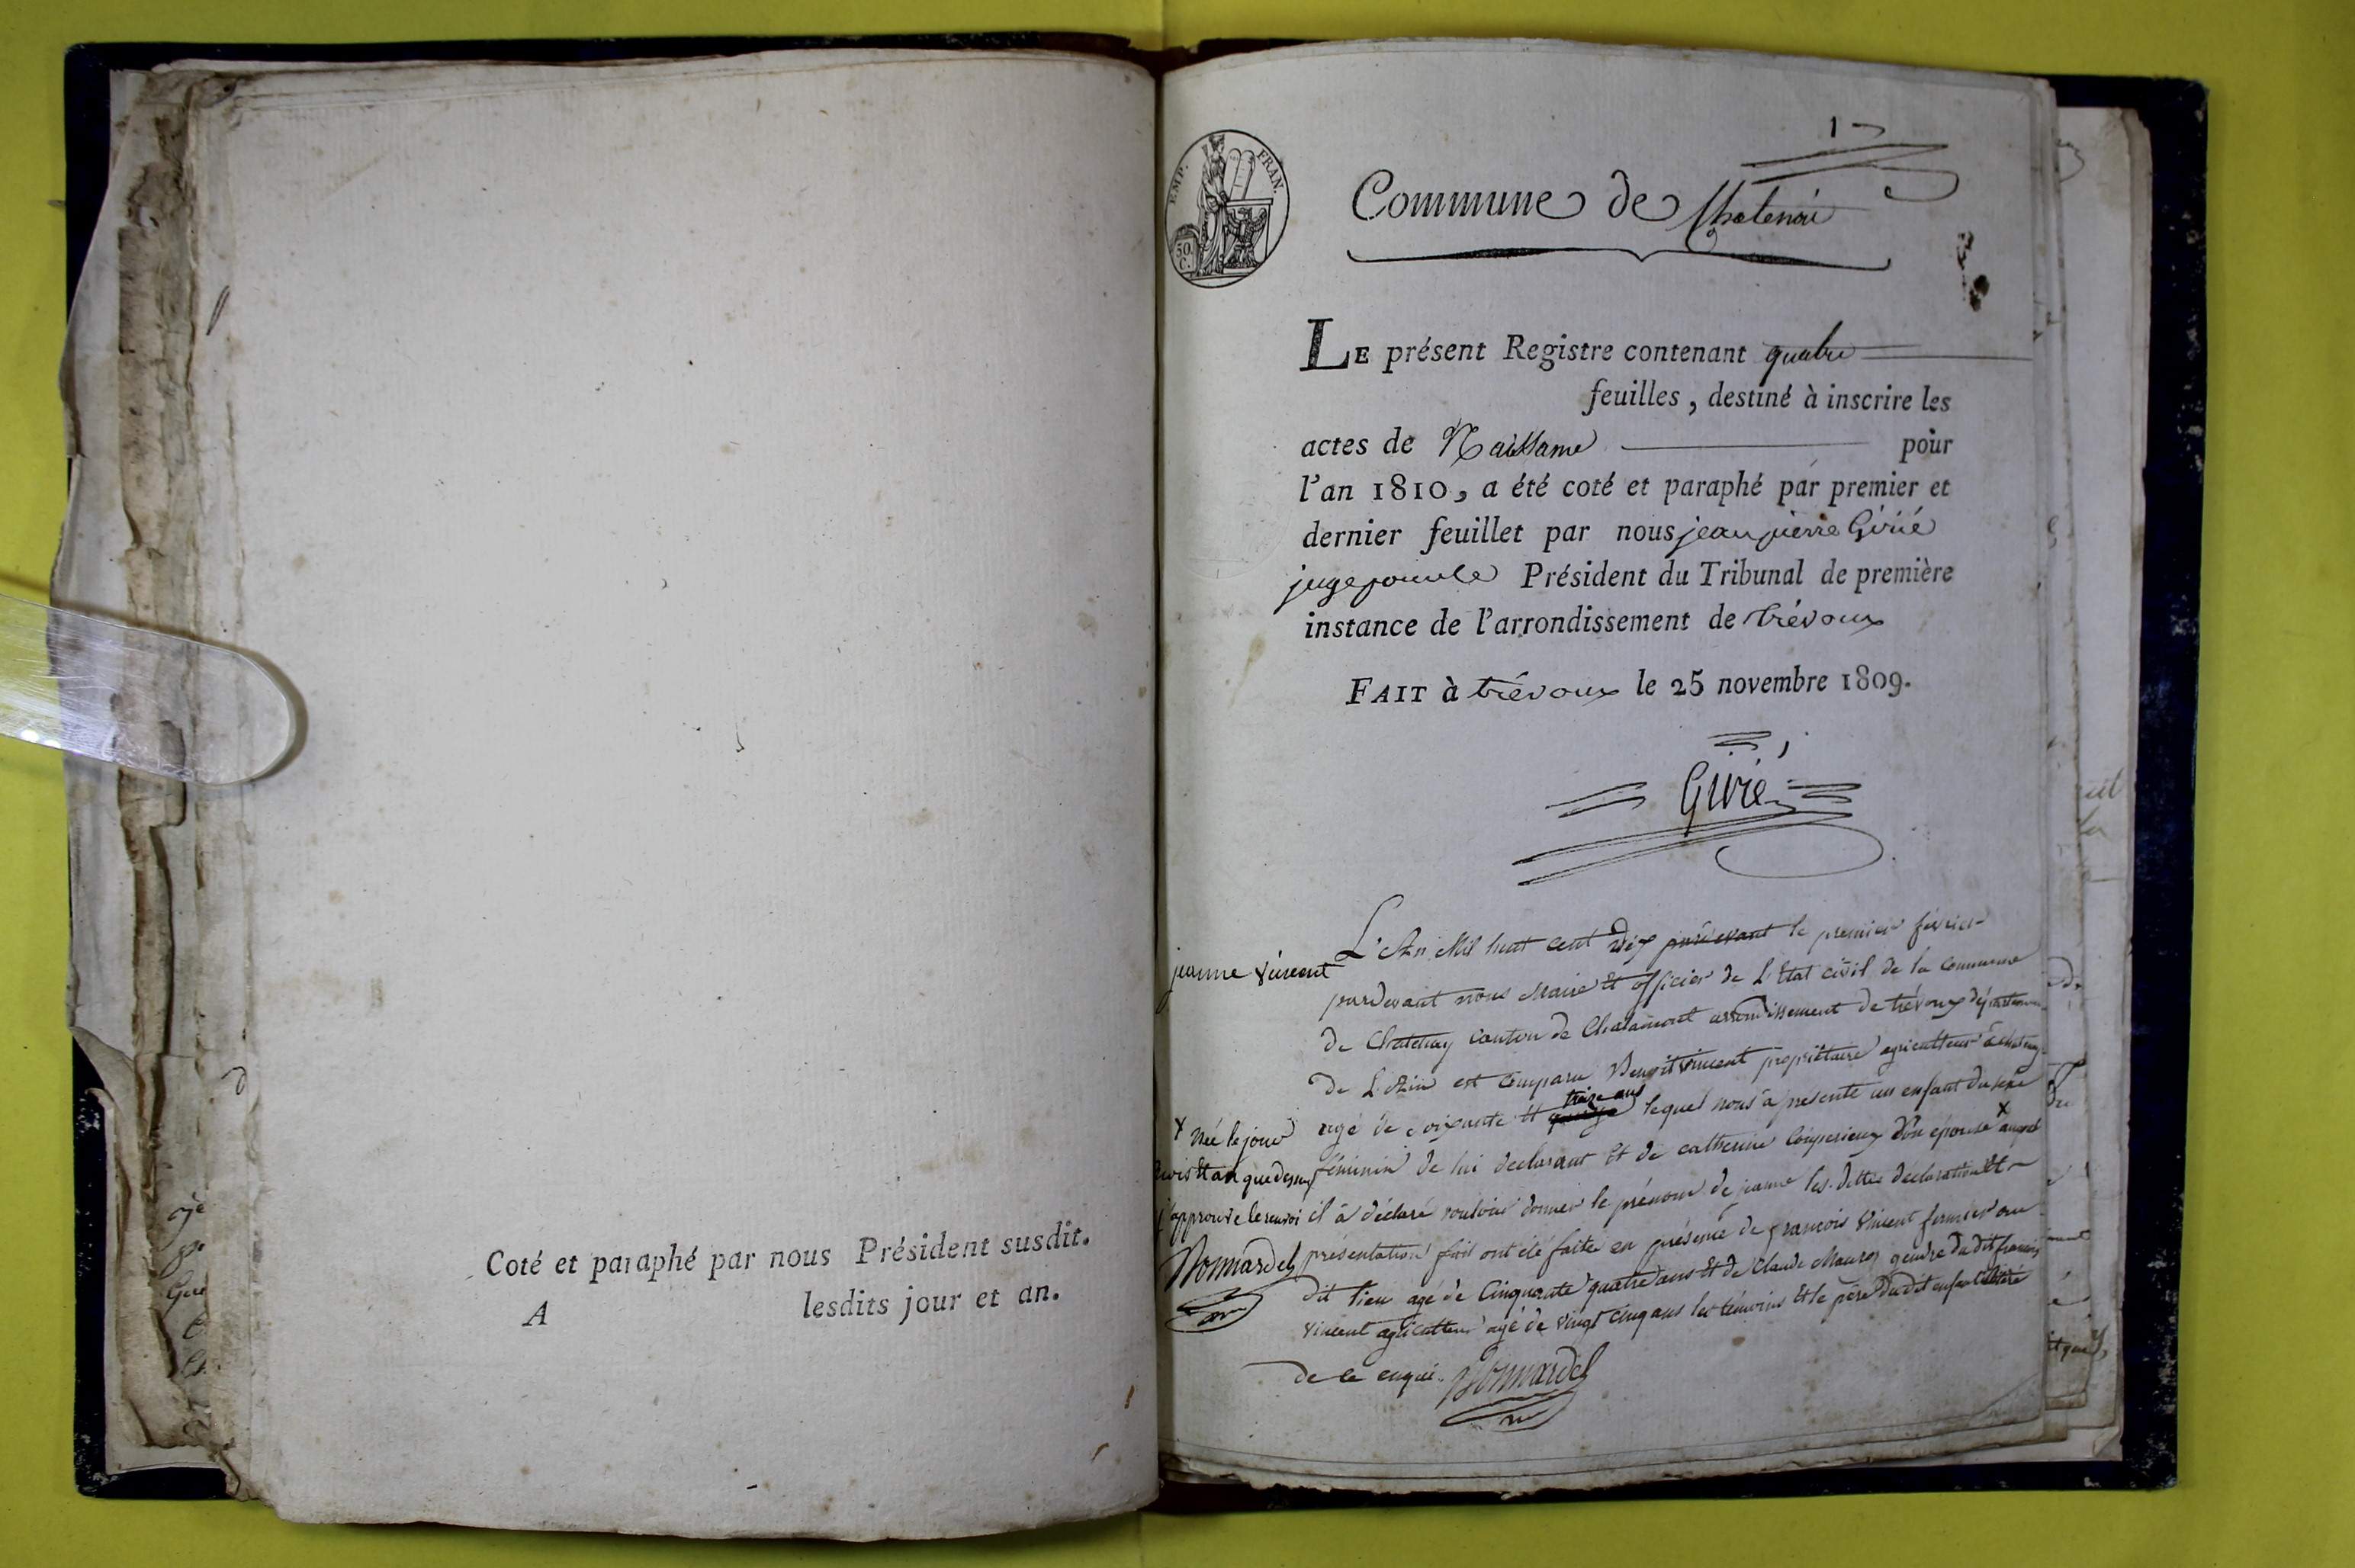 Coté et paraphé par nous Président susdit.
A lesdits jour et an.
1
EMP. FRAN.
50 C.
Commune de Chatenai
LE présent Registre contenant quatre
feuilles, destiné à inscrire les
actes de Naissance pour
l'an 1810, a été coté et paraphé par premier et
dernier feuillet par nous jean pierre Girié
juge pour le Président du Tribunal de première
instance de l'arrondissement de trévoux
FAIT à trévoux le 25 novembre 1809.
Girié
jeanne vincent
L'An Mil huit cent dix pardevant le premier février
pardevant nous Maire et officier de L'Etat civil de la commune
de Chatenay canton de Chalamont arrondissement de trévoux département
de L'Ain est comparu Benoit vincent propriétaire agriculteur à chatenay
treize ans
agé de soixante et lequel nous à présenté un enfant du sexe
féminin de lui declarant et de catherine son épouse x auquel
il à déclaré vouloir donner le prénom de jeanne les dittes declaration et
présentation fait ont été faite en présence de francois Vincent fermier au
dit lieu agé de Cinquante quatre ans et de Claude gendre dudit francois
vincent agriculteur agé de vingt cinq ans les témoins et le père dudit enfant
de ce enquis. Bonnardel
x née le jour
mois et an que dessus
j'approuve le renvoi
Bonnardel